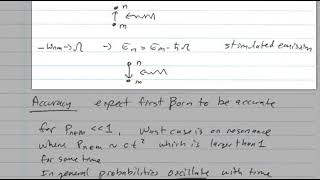 n
m
-ωnm → Ω → εn = εm - ħΩ stimulated emission
m
n
Accuracy expect first Born to be accurate
for Pnem << 1. Worst case is on resonance
where Pnem ~ ct² which is larger than 1
for some time
In general probabilities oscillate with time